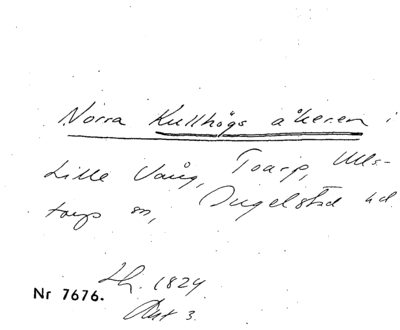 Norra Kullhögs åkeren i
Lille Vång, Toarp, Ulls-
torps sn, Ingelstad hd.
Lh. 1824
Nr 7676.
Akt 3.